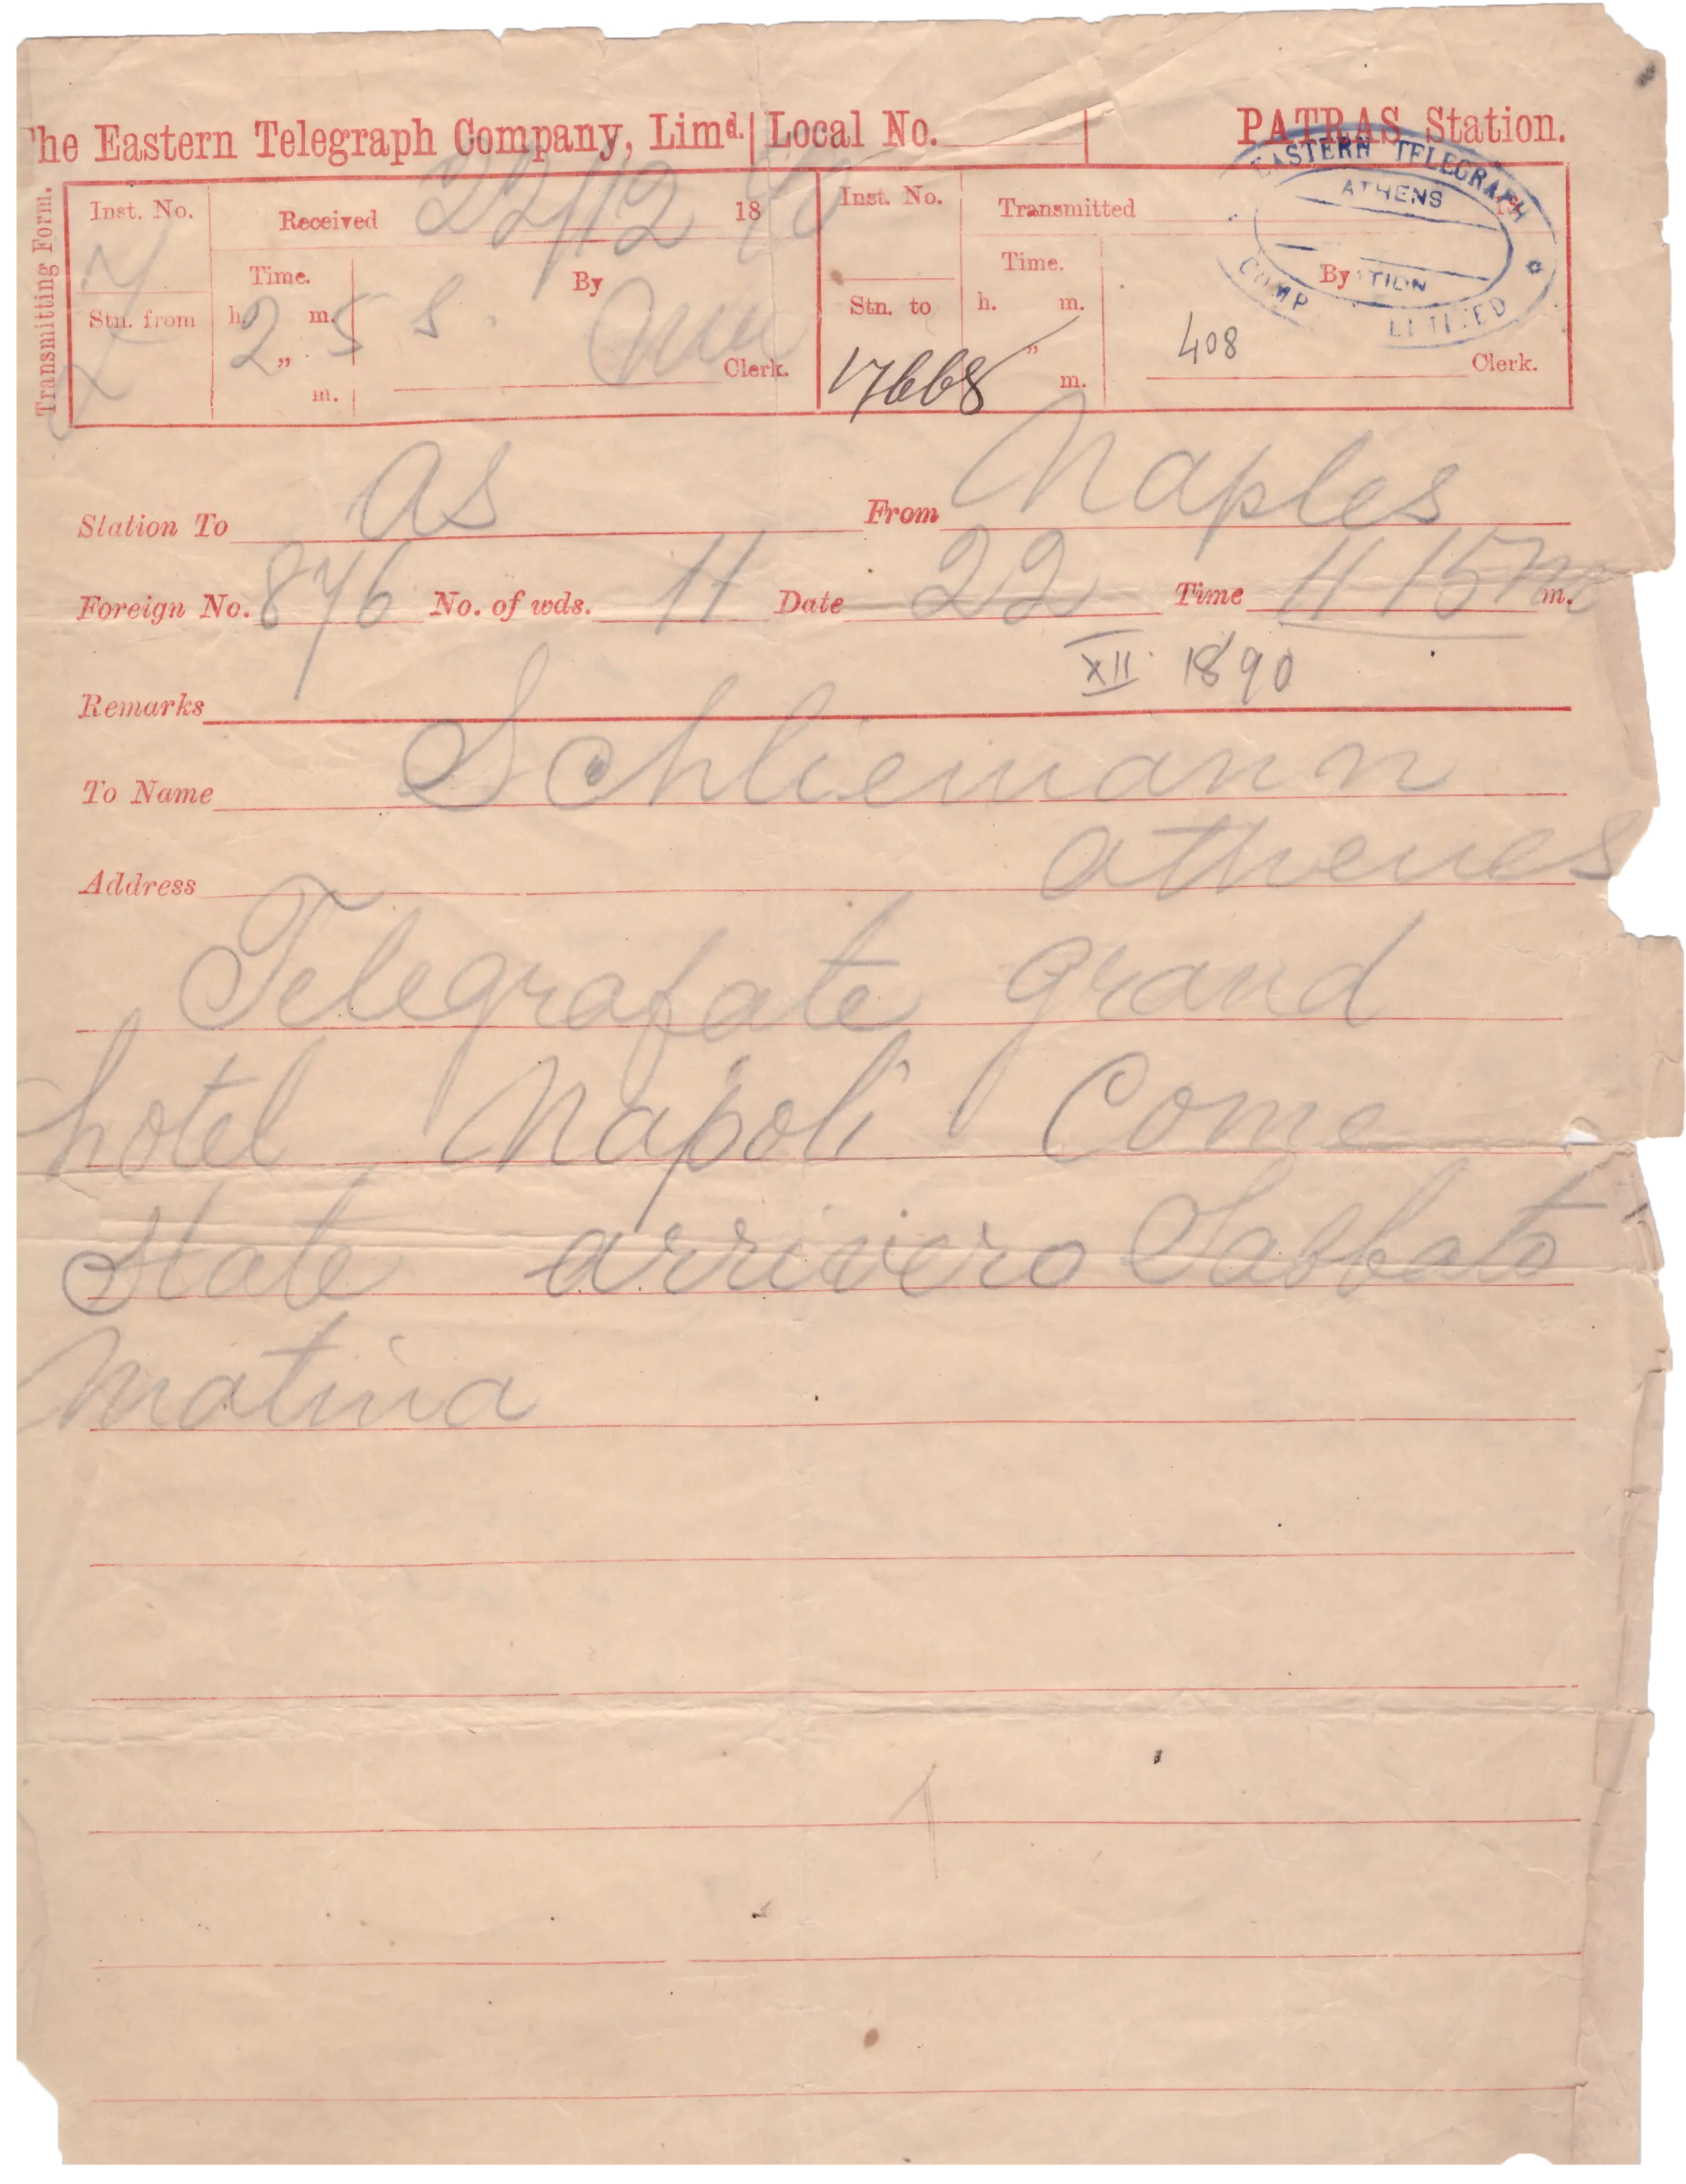 The Eastern Telegraph Company, Limd. Local No. PATRAS Station.
EASTERN TELEGRAPH
ATHENS
LIMITED
Transmitting Form.
Inst. No. Received 22/12 1890
Inst. No. Transmitted 18
Stn. from
Time. By
h. m.
2 " 5 S.
m.
Clerk.
Stn. to
Time. By
h. m.
"
m.
17668
408
Clerk.
Station To as From Naples
Foreign No. 876 No. of wds. 11 Date 22 Time 11 15 m m.
XII 1890
Remarks
To Name Schliemann
Address athenes
Telegrafate grand
hotel Napoli Come
state arrivero Sabbato
matina